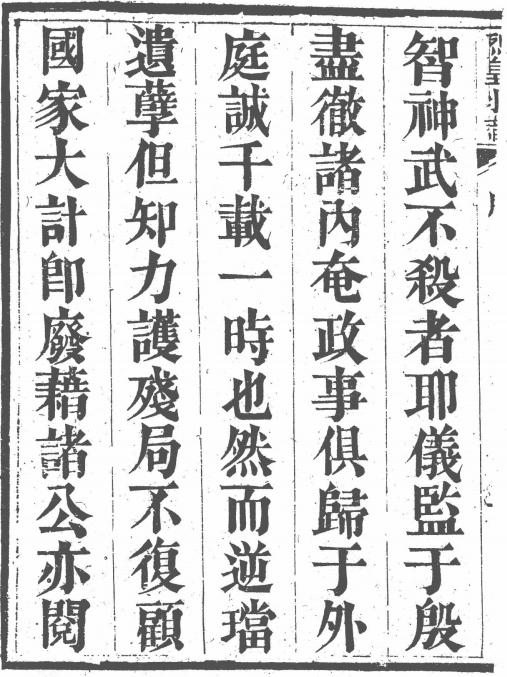 智神武不殺者耶儀監于殷
盡徹諸內奄政事俱歸于外
庭誠千載一時也然而逆璫
遺孽但知力護殘局不復顧
國家大計卽廢藉諸公亦閱